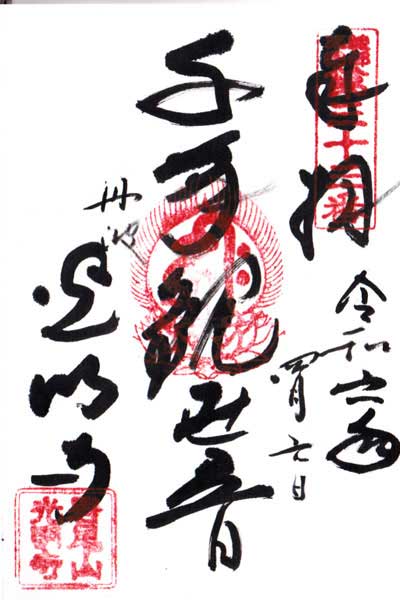 奉拝
令和六年
四月六日
千手観世音
丹波
光明寺
君尾山
光明寺